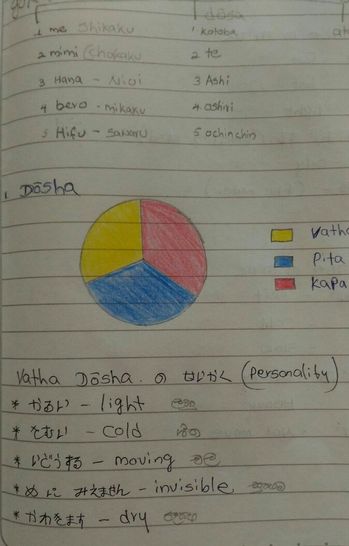 dōsa
1 me Shikaku
1 kotoba
2 mimi (Chokaku
2 te
3 Hana - Nioi
3 Ashi
4 bero - mikaku
4 oshiri
5 Hifu - sawaru
5 ochinchin
1. Dōsha
Vatha
Pita
Kapa
Vatha Dōsha. の せいかく (Personality)
* かるい - light
* さむい - cold
* いどうする - moving
* めに みえません - invisible
* かわきます - dry